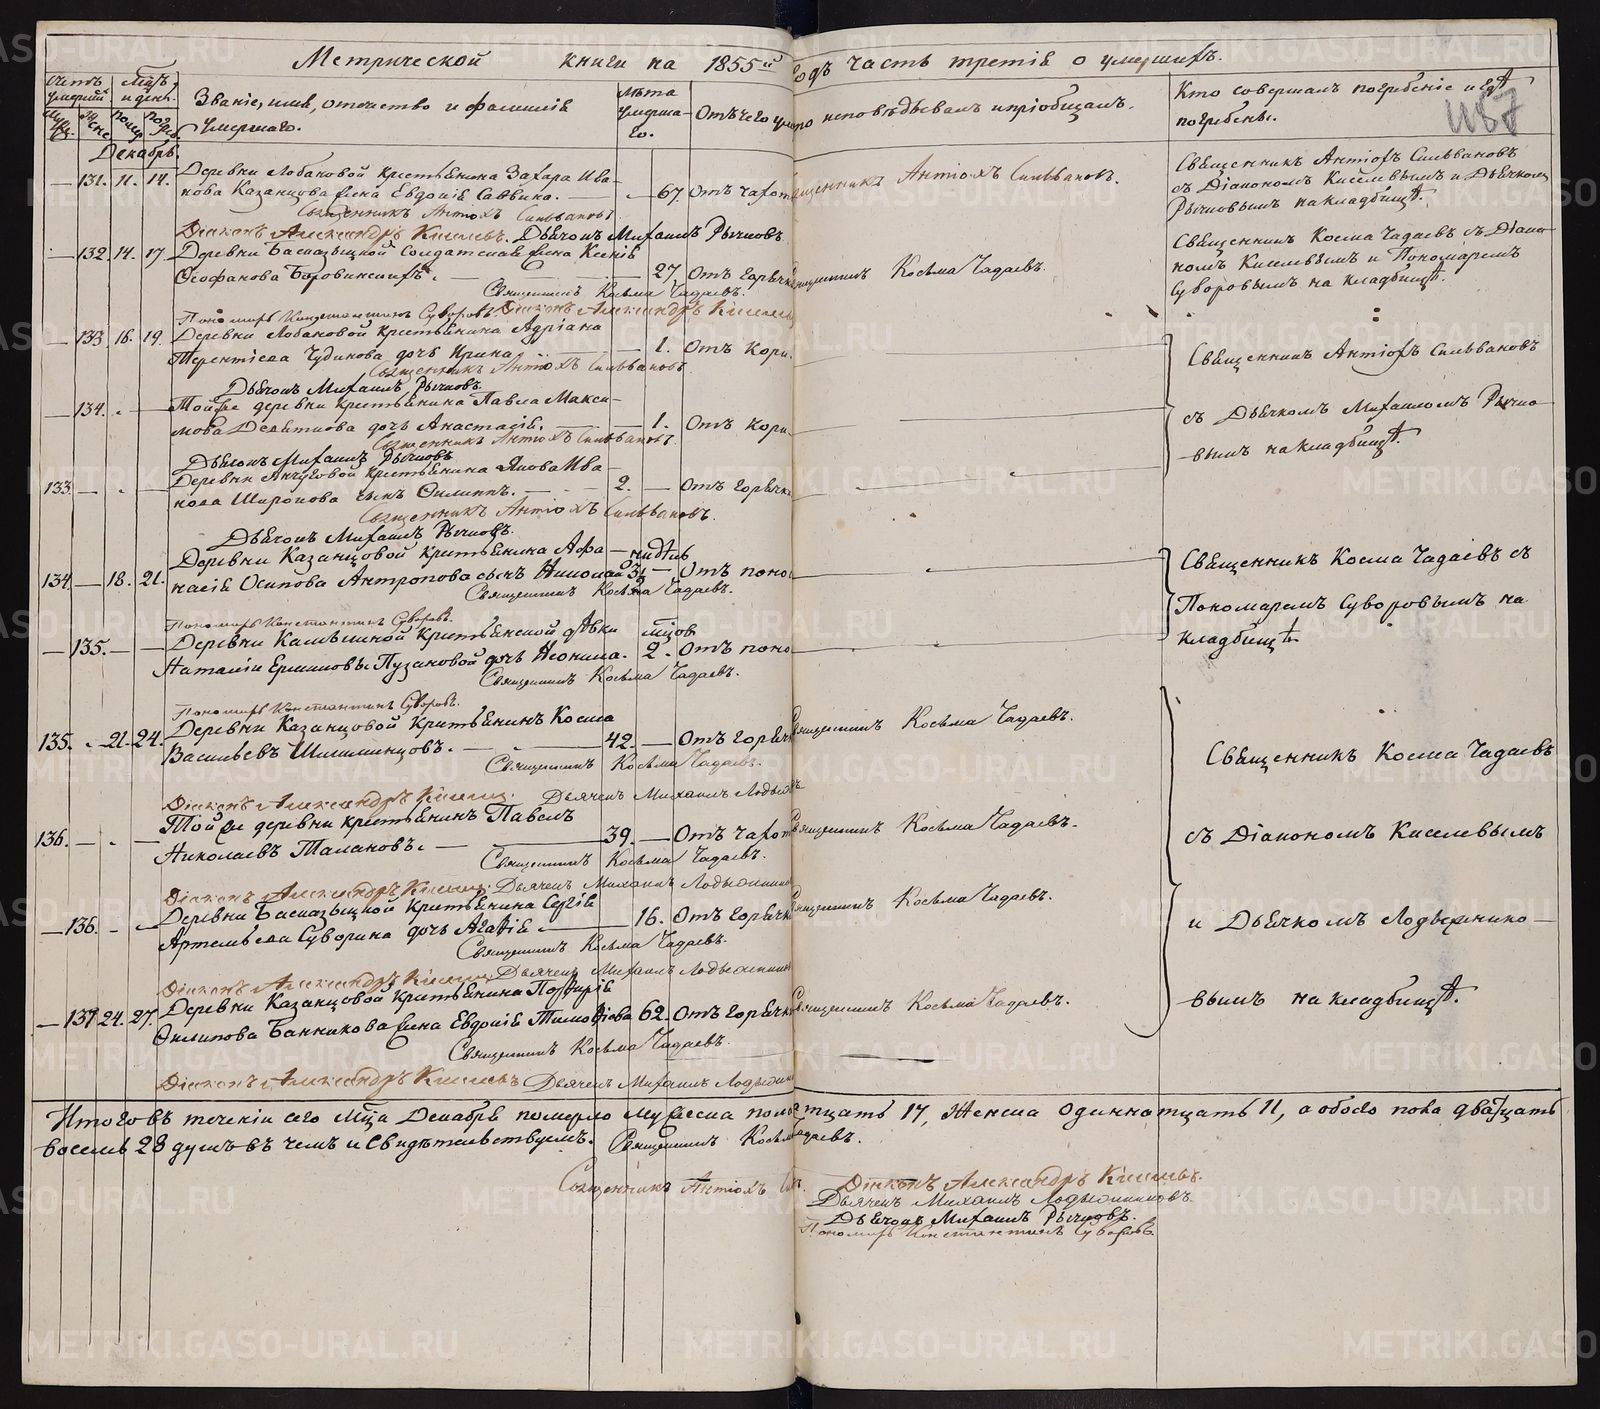 Метрической книги на 1855й годъ часть третія о умершихъ.
Счетъ умершихъ
Мцъ и день.
Званіе, имя, отечество и фамилія умершаго.
Лѣта умершаго.
Отъ чего умеръ
Кто исповѣдывалъ и пріобщалъ.
Кто совершалъ погребеніе и гдѣ погребены.
Декабрь.
— 131. 11. 14. Деревни Лобановой крестьянина Захара Ива-
нова Казанцова жена Евдокія Саввина. — 67. Отъ чахот
Священникъ Антіохъ Сильвановъ.
Священникъ Антіохъ Сильвановъ
съ Діакономъ Киселевымъ и Дьячкомъ
Рычковымъ на кладбищѣ.
Священникъ Антіохъ Сильвановъ
Діаконъ Александръ Киселевъ. Дьячокъ Михаилъ Рычковъ
— 132. 14. 17. Деревни солдатская жена Ксенія
Ѳеофанова Боровинскихъ. — 27. Отъ горячк
Священникъ Косьма Чадаевъ.
Священникъ Косма Чадаевъ съ Діако-
номъ Киселевымъ и Пономаремъ
Суворовымъ на кладбищѣ.
Священникъ Косьма Чадаевъ.
Пономарь Константинъ Суворовъ Діаконъ Александръ Киселевъ
— 133. 16. 19. Деревни Лобановой крестьянина Адріана
Терентіева Чудинова дочь Ирина — 1. Отъ Кори.
Священникъ Антіохъ Сильвановъ
Священникъ Антіохъ Сильвановъ
Дьячокъ Михаилъ Рычковъ.
— 134. — Той же деревни крестьянина Павла Макси-
мова Девяткова дочь Анастасія. — 1. Отъ Кори
съ Дьячкомъ Михаиломъ Рычко-
вымъ на кладбищѣ.
Священникъ Антіохъ Сильвановъ.
Дьячокъ Михаилъ Рычковъ
133. — Деревни крестьянина Якова Ива-
нова Широкова сынъ Филиппъ. — 2. — Отъ горячк
Священникъ Антіохъ Сильвановъ.
Дьячокъ Михаилъ Рычковъ.
134. — 18. 21. Деревни Казанцовой крестьянина Афа-
насія Осипова Антропова сынъ Николай 3 недѣль — Отъ поно
Священникъ Косма Чадаевъ съ
Пономаремъ Суворовымъ на
кладбищѣ
Священникъ Косьма Чадаевъ.
Пономарь Константинъ Суворовъ.
— 135. — Деревни крестьянской дѣвки
Наталіи Ермиловы Пузановой дочь Неонила. 2. мцов Отъ поно
Священникъ Косьма Чадаевъ.
Пономарь Константинъ Суворовъ.
135. — 21. 24. Деревни Казанцовой крестьянинъ Косма
Васильевъ Шишминцовъ. — 42. — Отъ горячк
Священникъ Косьма Чадаевъ.
Священникъ Косма Чадаевъ
Священникъ Косьма Чадаевъ.
Діаконъ Александръ Киселевъ. Дьячекъ Михаилъ
136. — Той же деревни крестьянинъ Павелъ
Николаевъ Талановъ. — 39. — Отъ чахот
Священникъ Косьма Чадаевъ.
съ Діакономъ Киселевымъ
Священникъ Косьма Чадаевъ.
Діаконъ Александръ Киселевъ. Дьячекъ Михаилъ
— 136. — Деревни крестьянина Сергія
Артемьева Суворина дочь Агафія — 16. Отъ горячк
Священникъ Косьма Чадаевъ.
и Дьячкомъ Лодыжнико-
Священникъ Косьма Чадаевъ.
Діаконъ Александръ Киселевъ Дьячекъ Михаилъ
— 137. 24. 27. Деревни Казанцовой крестьянина Порфирія
Филипова Банникова жена Евдокія Тимофіева 62. Отъ горячк
Священникъ Косьма Чадаевъ.
вымъ на кладбищѣ.
Священникъ Косьма Чадаевъ.
Діаконъ Александръ Киселевъ Дьячекъ Михаилъ
Итого въ теченіи сего Мца Декабря померло мужеска пола 17, Женска одиннатцать 11, а обоего пола дватцать
восемь 28 душъ въ чемъ и свидѣтельствуемъ. Священникъ Косьма Чадаевъ.
Священникъ Антіохъ
Діаконъ Александръ Киселевъ.
Дьячекъ Михаилъ Лодыжниковъ.
Дьячокъ Михаилъ Рычковъ.
Пономарь Константинъ Суворовъ.
METRIKI.GASO-URAL.RU